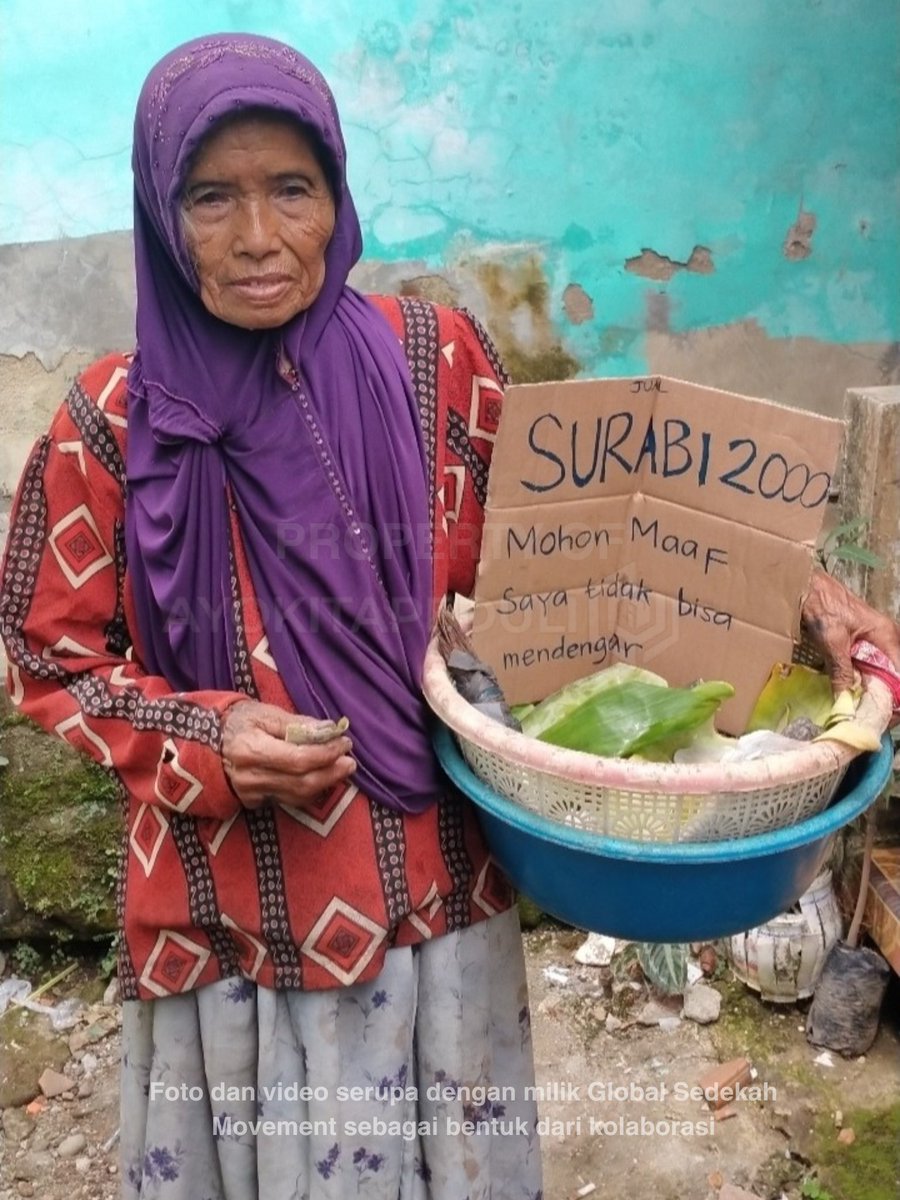 JUAL
SURABI 2000
Mohon Maaf
Saya tidak bisa
mendengar
PROPERTY OF
AYOKITAPEDULI
Foto dan video serupa dengan milik Global Sedekah
Movement sebagai bentuk dari kolaborasi